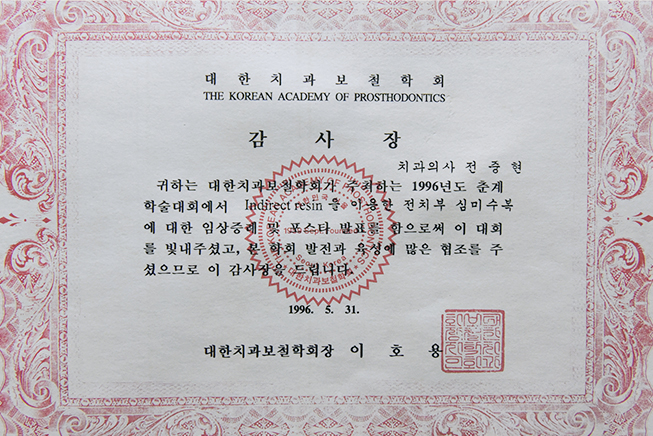 대한치과보철학회
THE KOREAN ACADEMY OF PROSTHODONTICS
감 사 장
치과의사 전 중 현
귀하는 대한치과보철학회가 주최하는 1996년도 춘계
학술대회에서 Indirect resin 을 이용한 전치부 심미수복
에 대한 임상증례 및 포스타 발표를 함으로써 이 대회
를 빛내주셨고, 본 학회 발전과 육성에 많은 협조를 주
셨으므로 이 감사장을 드립니다.
1996. 5. 31.
대한치과보철학회장 이 호 용